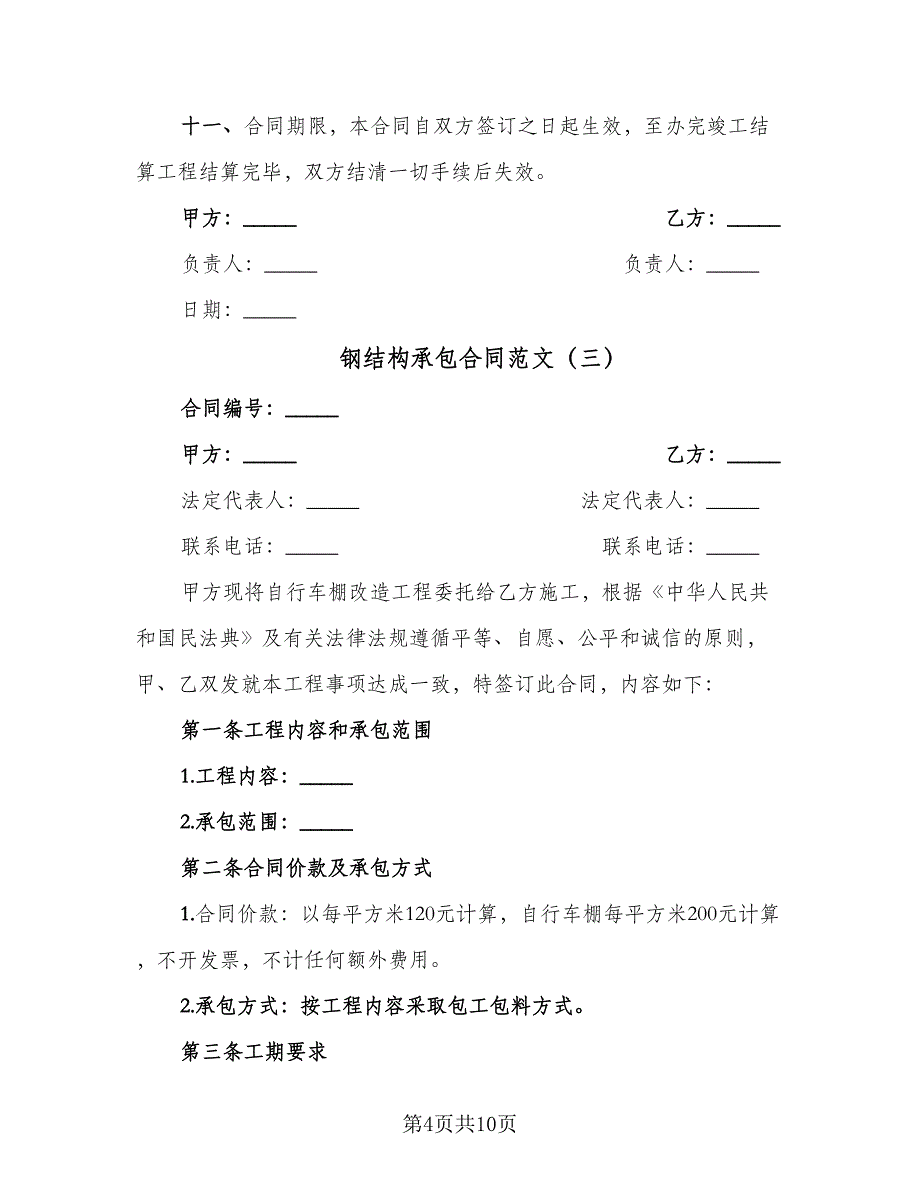 十一、合同期限，本合同自双方签订之日起生效，至办完竣工结
算工程结算完毕，双方结清一切手续后失效。
甲方：_____ 乙方：_____
负责人：_____ 负责人：_____
日期：_____
钢结构承包合同范文（三）
合同编号：_____
甲方：_____ 乙方：_____
法定代表人：_____ 法定代表人：_____
联系电话：_____ 联系电话：_____
甲方现将自行车棚改造工程委托给乙方施工，根据《中华人民共
和国民法典》及有关法律法规遵循平等、自愿、公平和诚信的原则，
甲、乙双发就本工程事项达成一致，特签订此合同，内容如下：
第一条工程内容和承包范围
1.工程内容：_____
2.承包范围：_____
第二条合同价款及承包方式
1.合同价款：以每平方米120元计算，自行车棚每平方米200元计算
，不开发票，不计任何额外费用。
2.承包方式：按工程内容采取包工包料方式。
第三条工期要求
第4页共10页